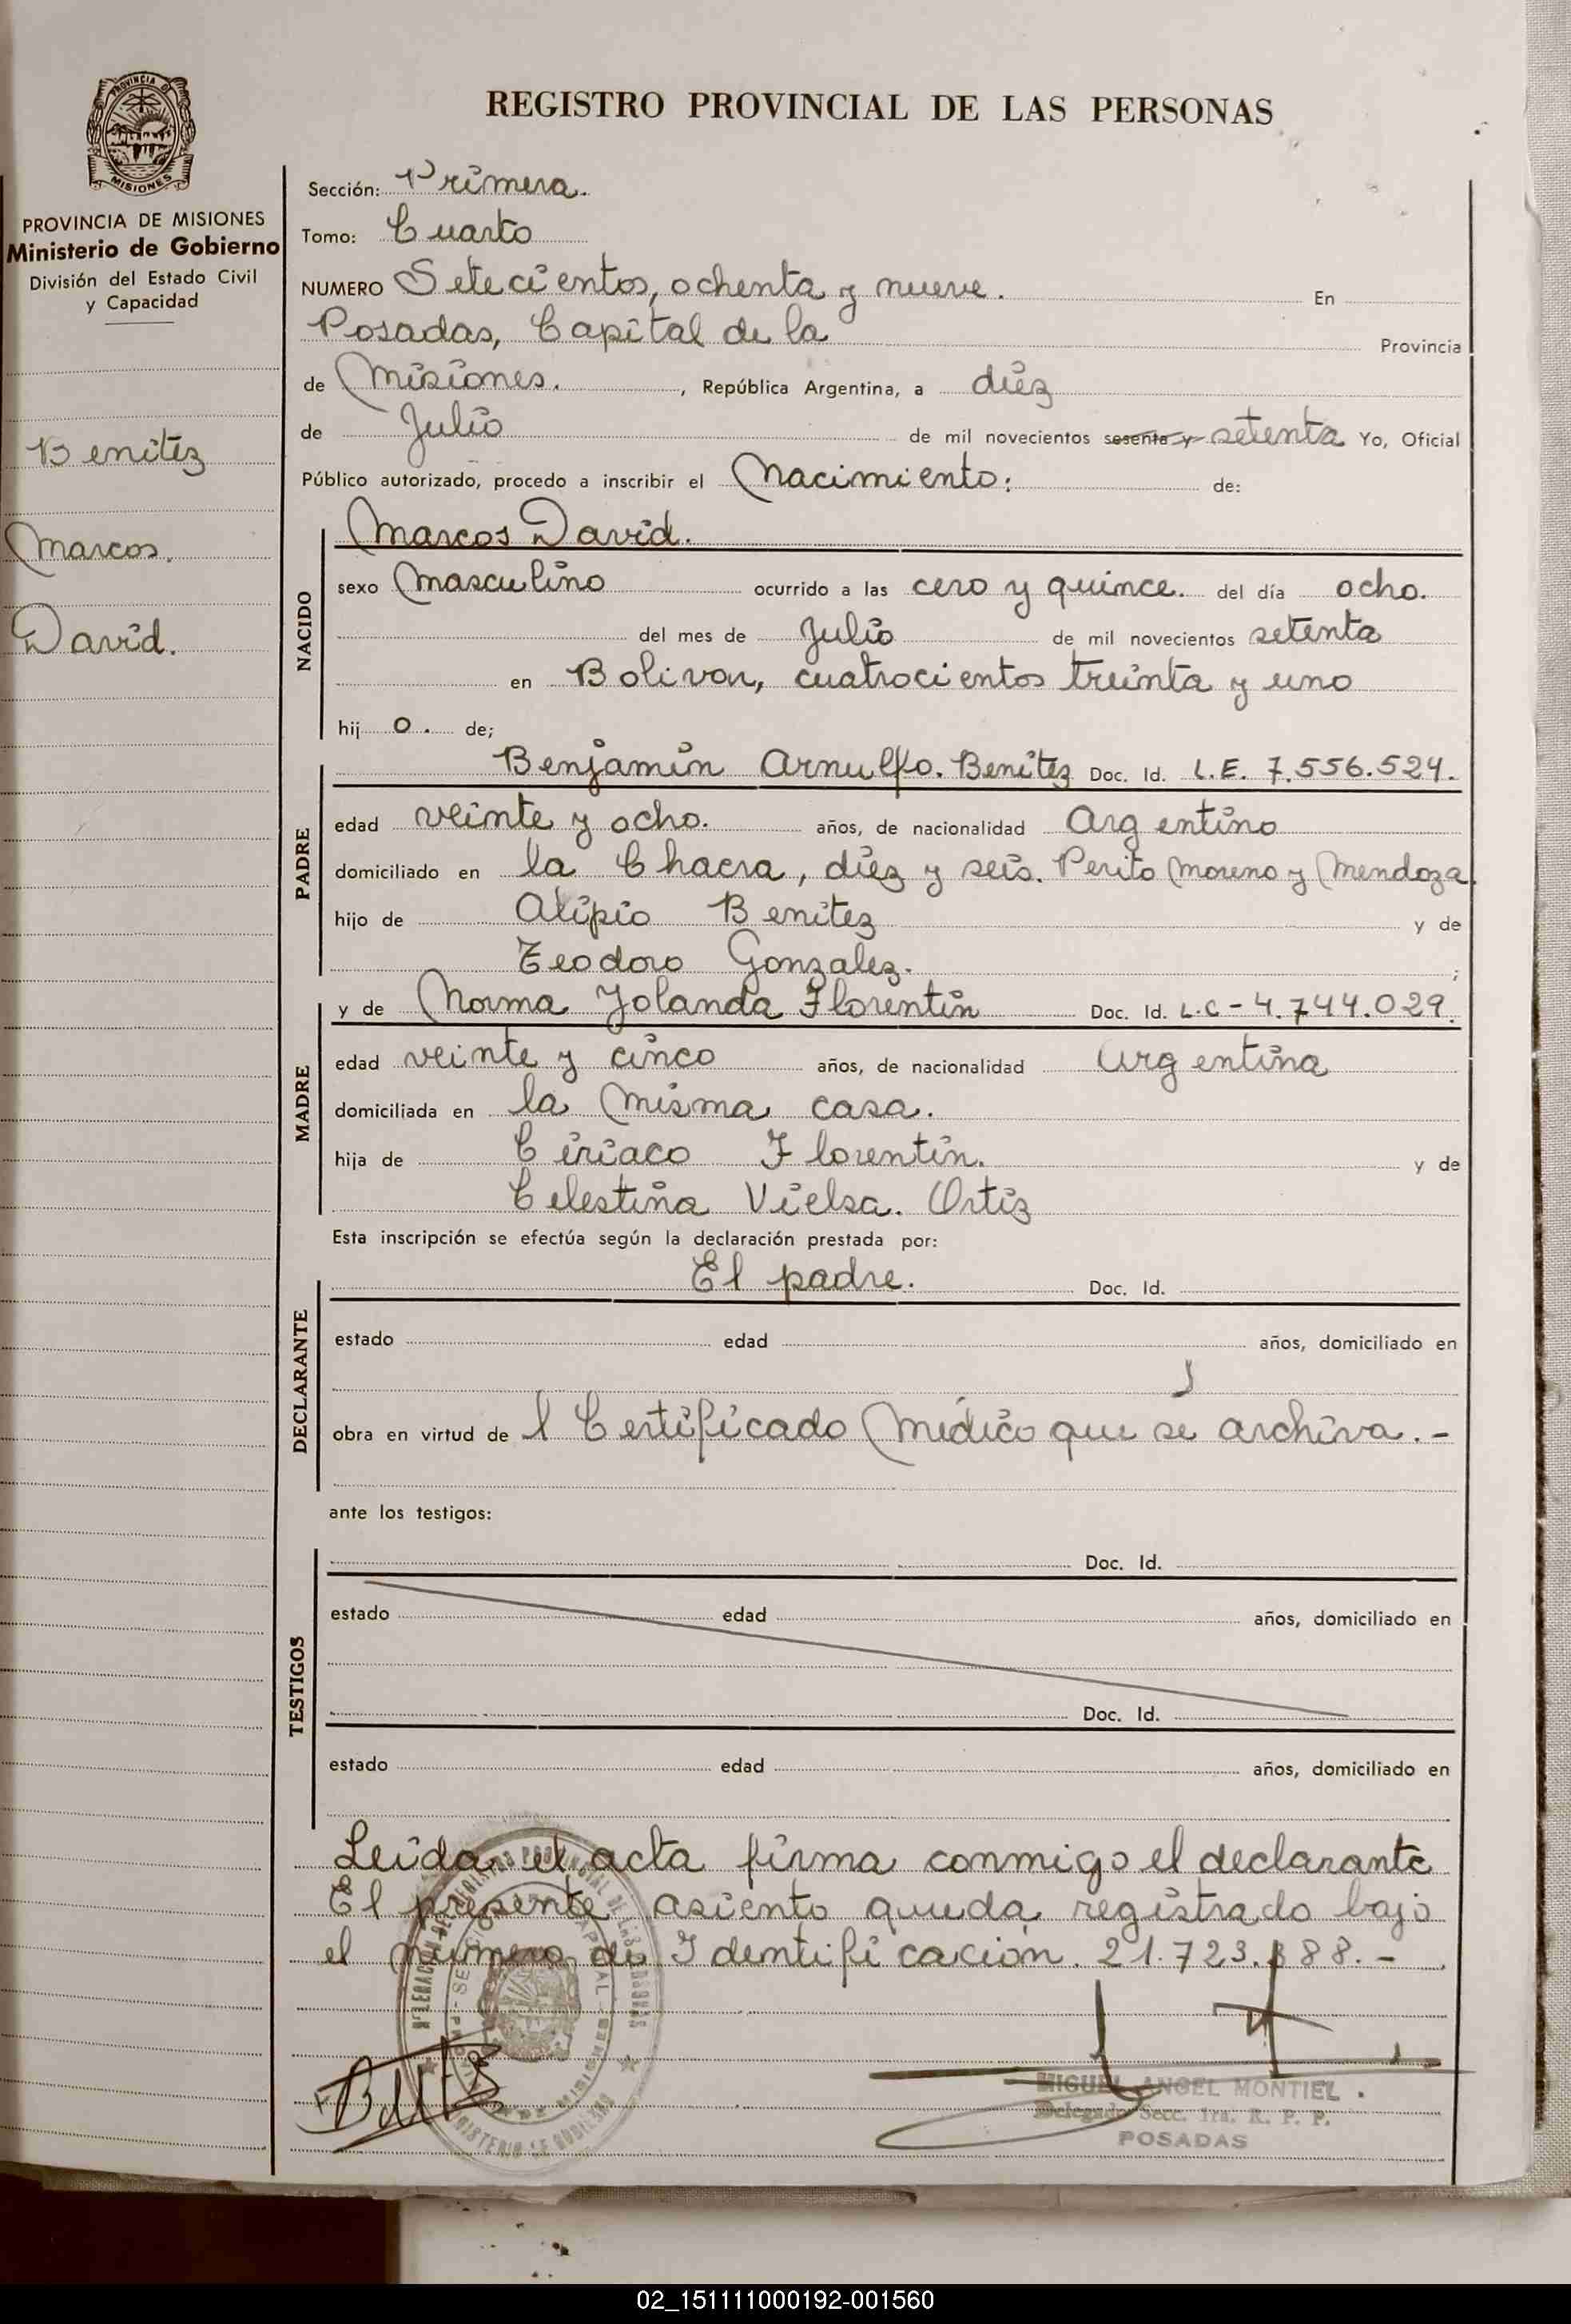 REGISTRO PROVINCIAL DE LAS PERSONAS
PROVINCIA DE
MISIONES
PROVINCIA DE MISIONES
Ministerio de Gobierno
División del Estado Civil
y Capacidad
Benitez
Marcos.
David.
Sección: Primera.
Tomo: Cuarto
NUMERO Setecientos, ochenta y nueve. En
Posadas, Capital de la Provincia
de Misiones. , República Argentina, a diez
de Julio de mil novecientos sesenta y setenta Yo, Oficial
Público autorizado, procedo a inscribir el Nacimiento: de:
Marcos David.
NACIDO
sexo Masculino ocurrido a las cero y quince. del día ocho.
del mes de Julio de mil novecientos setenta
en Bolivar, cuatrocientos treinta y uno
hij o. de;
PADRE
Benjamín Arnulfo. Benitez Doc. Id. L.E. 7.556.524.
edad veinte y ocho. años, de nacionalidad Argentino
domiciliado en la Chacra, diez y seis. Perito Moreno y Mendoza.
hijo de Alipio Benitez y de
Teodoro Gonzalez. ;
MADRE
y de Norma Yolanda Florentín Doc. Id. L.C-4.744.029.
edad veinte y cinco años, de nacionalidad Argentina
domiciliada en la misma casa.
hija de Ciriaco Florentín. y de
Celestina Vielsa. Ortiz
Esta inscripción se efectúa según la declaración prestada por:
DECLARANTE
El padre. Doc. Id.
estado edad años, domiciliado en
obra en virtud de l Certificado Médico que se archiva.-
ante los testigos:
TESTIGOS
Doc. Id.
estado edad años, domiciliado en
Doc. Id.
estado edad años, domiciliado en
Leida el acta firma conmigo el declarante
El presente asiento queda registrado bajo
el número de Identificación. 21.723.388.-
MIGUEL ANGEL MONTIEL .
Delegado Secc. 1ra. R. P. P.
POSADAS
02_151111000192-001560